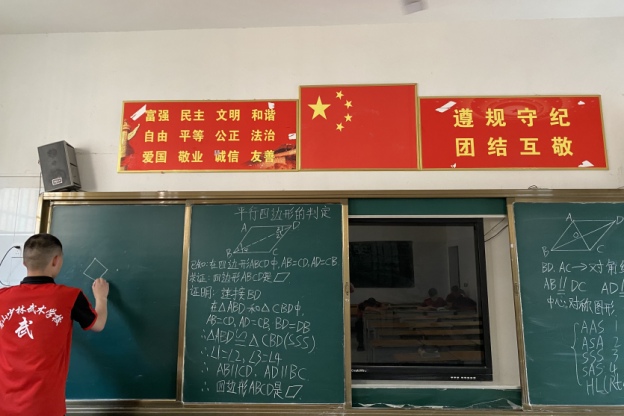 富强 民主 文明 和谐
自由 平等 公正 法治
爱国 敬业 诚信 友善
遵规守纪
团结互敬
平行四边形的判定
A D
B C
已知:在四边形ABCD中,AB=CD,AD=CB
求证:四边形ABCD是▱
证明:连接BD
在△ABD和△CBD中,
AB=CD,AD=CB,BD=DB
∴△ABD≌△CBD(SSS)
∴∠1=∠2,∠3=∠4
∴AB∥CD,AD∥BC
∴四边形ABCD是▱
A D
B C
BD.AC→对角线
AB∥DC AD∥
中心对称图形
AAS
ASA
SSS
SAS
HL
山少林武术学校
武